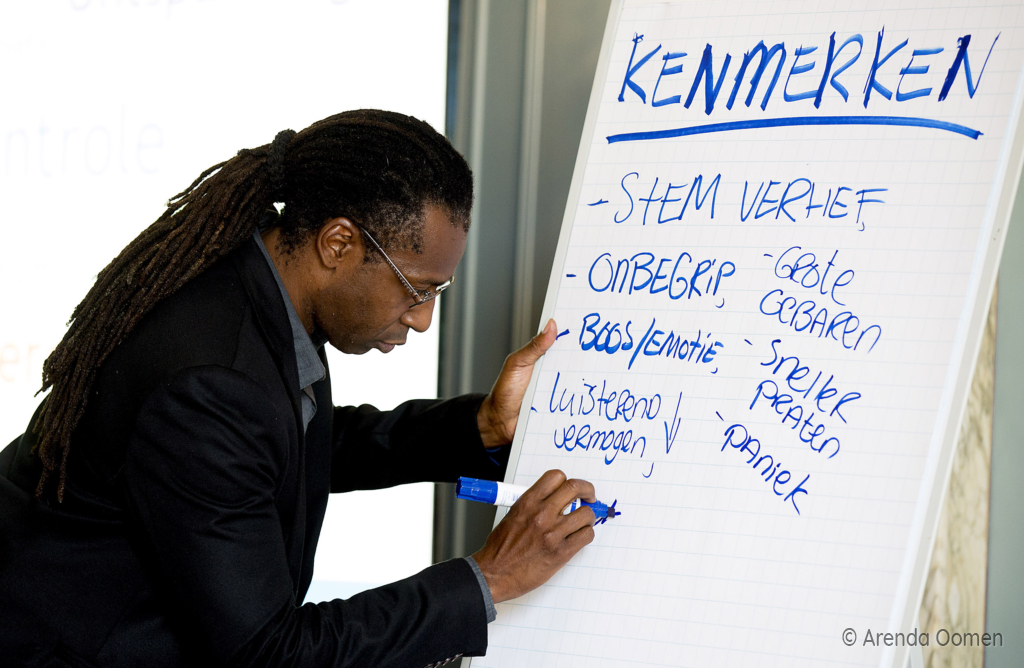 ntrole
KENMERKEN
- STEM VERHEF,
- ONBEGRIP,
- BOOS/EMOTIE,
- LUISTEREND
VERMOGEN, ↓
- GROTE
GEBAREN
- SNELLER
PRATEN
- PANIEK
© Arenda Oomen